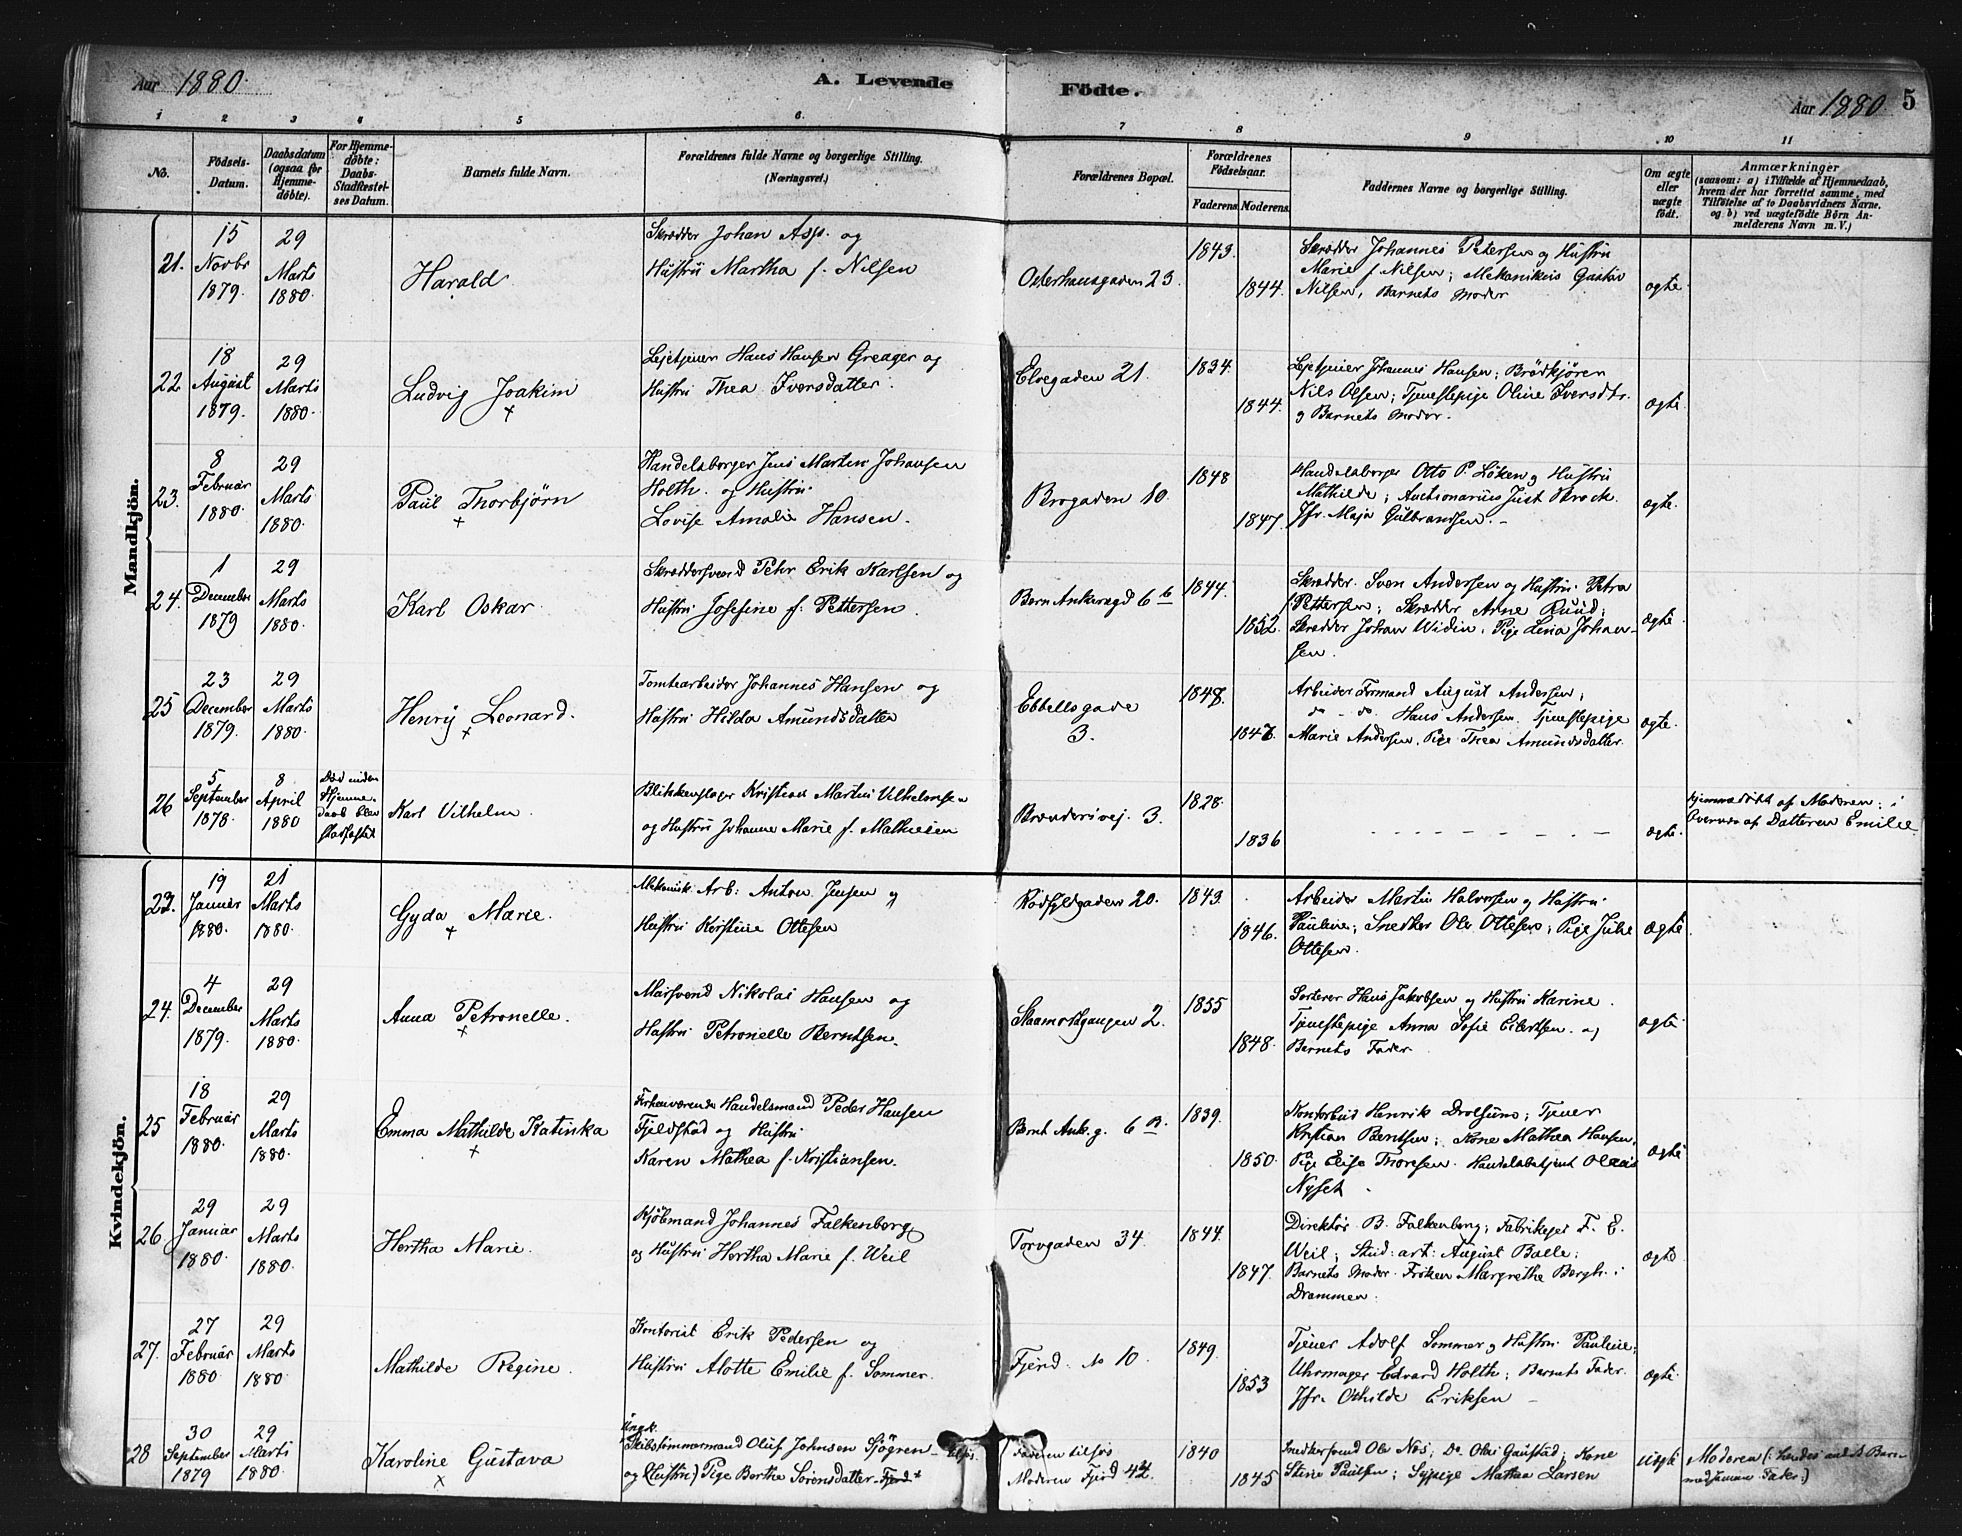 Aar 1880.
A. Levende Födte.
Aar 1880
5
1 2 3 4 5 6. 7 8 9 10 11
No.
Födsels-Datum.
Daabsdatum (ogsaa for Hjemmedöbte).
For Hjemmedöbte: Daabs-Stadfæstelses Datum.
Barnets fulde Navn.
Forældrenes fulde Navne og borgerlige Stilling. (Næringsvei.)
Forældrenes Bopæl.
Forældrenes Födselsaar.
Faderens. Moderens.
Faddernes Navne og borgerlige Stilling.
Om ægte eller uægte födt.
Anmærkninger
(saasom: a) i Tilfælde af Hjemmedaab, hvem der har forrettet samme, med Tilföielse af to Daabsvidners Navne. og b) ved uægtefödte Börn Anmelderens Navn m. V.)
Mandkjön.
21. 15 Novbr 1879. 29 Marts 1880.
Harald
Skrædder Johan Asp. og
Hustru Martha f. Nilsen
Osterhausgaden 23.
1843. 1844.
Skrædder Johannes Petersen og Hustru
Marie f. Nilsen; Mekanikus Gustav
Nilsen, Barnets Moder
ægte
22 18 August 1879. 29 Marts 1880.
Ludvig Joakim
Lejetjener Hans Hansen Greager og
Hustru Thea Iversdatter.
Elvegaden 21.
1834. 1844.
Lejetjener Johannes Hansen; Brödkjörer
Nils Olsen; Tjenestepige Oline Iversdtr.
og Barnets Moder.
ægte.
23. 8 Februar 1880. 29 Marts 1880.
Paul Thorbjörn
Handelsborger Jens Martin Johansen
Holth. og Hustru
Lovise Amalie Hansen.
Brogaden 10.
1848 1847.
Handelsborger Otto P. Löken og Hustru
Mathilde; Auctionarius Just
Jfr. Maja Gulbrandsen.
ægte.
24. 1 December 1879 29 Marts 1880.
Karl Oskar.
Skræddersvend Pehr Erik Karlsen og
Hustru Josefine f. Pettersen.
Bernt Ankersgd 6 b
1844. 1852.
Skrædder. Sven Andersen og Hustru Petra
Pettersen; Skrædder Arne Ruud;
Skrædder Johan Widin, Pige Lena Johan-
sen.
ægte.
25 23 December 1879. 29 Marts 1880.
Henry Leonard.
Tomtearbeider Johannes Hansen og
Hustru Hilda Amundsdatter
Ebbellsgade 3.
1848. 1847.
Arbeider Formand August Andersen;
do - do. Hans Andersen. Tjenestepige
Marie Andersen, Pige Thea Amundsdatter.
ægte.
26 5 September 1878. 8 April 1880
Död inden Hjemmedaab blev stadfæstet
Karl Vilhelm.
Blikkenslager Kristian Martin Vilhelmsen
og Hustru Johanne Marie f. Mathiesen
3.
1828. 1836
- - - - - - - -
ægte.
Hjemmedöbt af Moderen; i
Overvær af Datteren Emilie
Kvindekjön.
23. 19 Januar 1880. 21 Marts 1880.
Gyda Marie.
Mekanisk Arb: Anton Jensen og
Hustru Kirstine Ottesen
Rødfyldgaden 20.
1843. 1846.
Arbeider Martin Halvorsen og Hustru
Pauline; Snedker Ole Ottesen; Pige Julie
Ottesen.
ægte
24. 4 December 1879. 29 Marts 1880.
Anna Petronelle.
Mursvend Nikolai Hansen og
Hustru Petronelle Berntsen.
2.
1855 1848.
Sorterer Hans Jakobsen og Hustru Karine.
Tjenestepige Anna Sofie Eilertsen. og
Barnets Fader.
ægte
25 18 Februar 1880. 29 Marts 1880.
Emma Mathilde Katinka
Forhenværende Handelsmand Peder Hansen
Fjeldstad og Hustru
Karen Mathea f. Kristiansen.
Bernt Ank. g. 6 B.
1839. 1850.
Kontorbud Henrik Drolsum; Tjener
Kristian Berntsen; Kone Mathea Hansen,
Pige Elise Thoresen. Handelsbetjent Olaus
Nyset.
ægte.
26. 29 Januar 1880. 29 Marts 1880.
Hertha Marie.
Kjöbmand Johannes Falkenberg
og Hustru Hertha Marie f. Weil
Torvgaden 34.
1844. 1847.
Direktör B. Falkenberg; Fabrikejer F. E.
Weil; Stud: art: August Balle;
Barnets Moder. Fröken Margrethe Borgh. i
Drammen.
ægte
27. 27 Februar 1880. 29 Marts 1880.
Mathilde Regine.
Kontorist Erik Pedersen og
Hustru Alotte Emilie f. Sommer.
Fjerd. No 10.
1849. 1853
Tjener Adolf Sommer og Hustru Pauline;
Uhrmager Edvard Holth; Barnets Fader.
Jfr. Othilde Eriksen
ægte.
28 30 September 1879 29 Marts 1880.
Karoline Gustava
Ungk.
Skibstömmermand Oluf Johnsen Sjögren
og (Hustru) Pige Berthe Sörensdatter
Faderen tilsjös
Moderen Fjerd 42.
1840 1845
Snedkersvend Ole Næs; Do Olai Gaustad; Kone
Stine Paulsen; Sypige Mathea Larsen
uægte
Moderen (: hendes andet Barn
med samme Fader:)